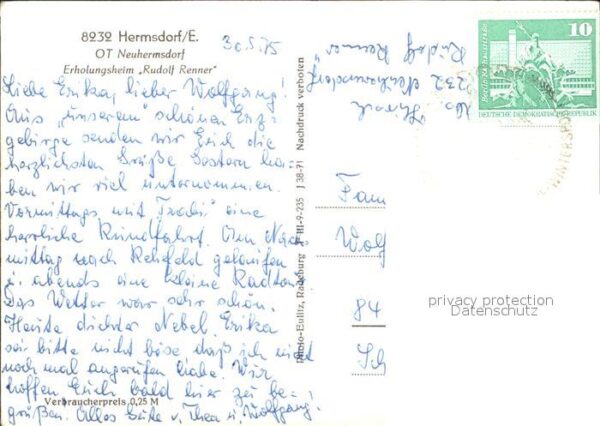 8232 Hermsdorf/E.
OT Neuhermsdorf
Erholungsheim „Rudolf Renner"
30.5.75
Liebe Erika, lieber Wolfgang!
Aus „unserem" schönen Erz-
gebirge senden wir Euch die
herzlichsten Grüße. Gestern ha-
ben wir viel unternommen.
Vormittags mit Trabi eine
herrliche Rundfahrt. Am Nach-
mittag nach Rehefeld gelaufen
u. abends eine kleine Radtour.
Das Wetter war sehr schön.
Heute dichter Nebel. Erika
sei bitte nicht böse daß ich nicht
noch mal angerufen habe. Wir
hoffen Euch bald hier zu be-
grüßen. Alles Gute v. Thea u. Wolfgang!
Verbraucherpreis 0,25 M
Photo-Eulitz, Radeburg III-9-235 J 38-71 Nachdruck verboten
8232 Neuhermsdorf
Rudolf Renner
10
DEUTSCHE DEMOKRATISCHE REPUBLIK
Fam
Wolf
84
Sch
privacy protection
Datenschutz